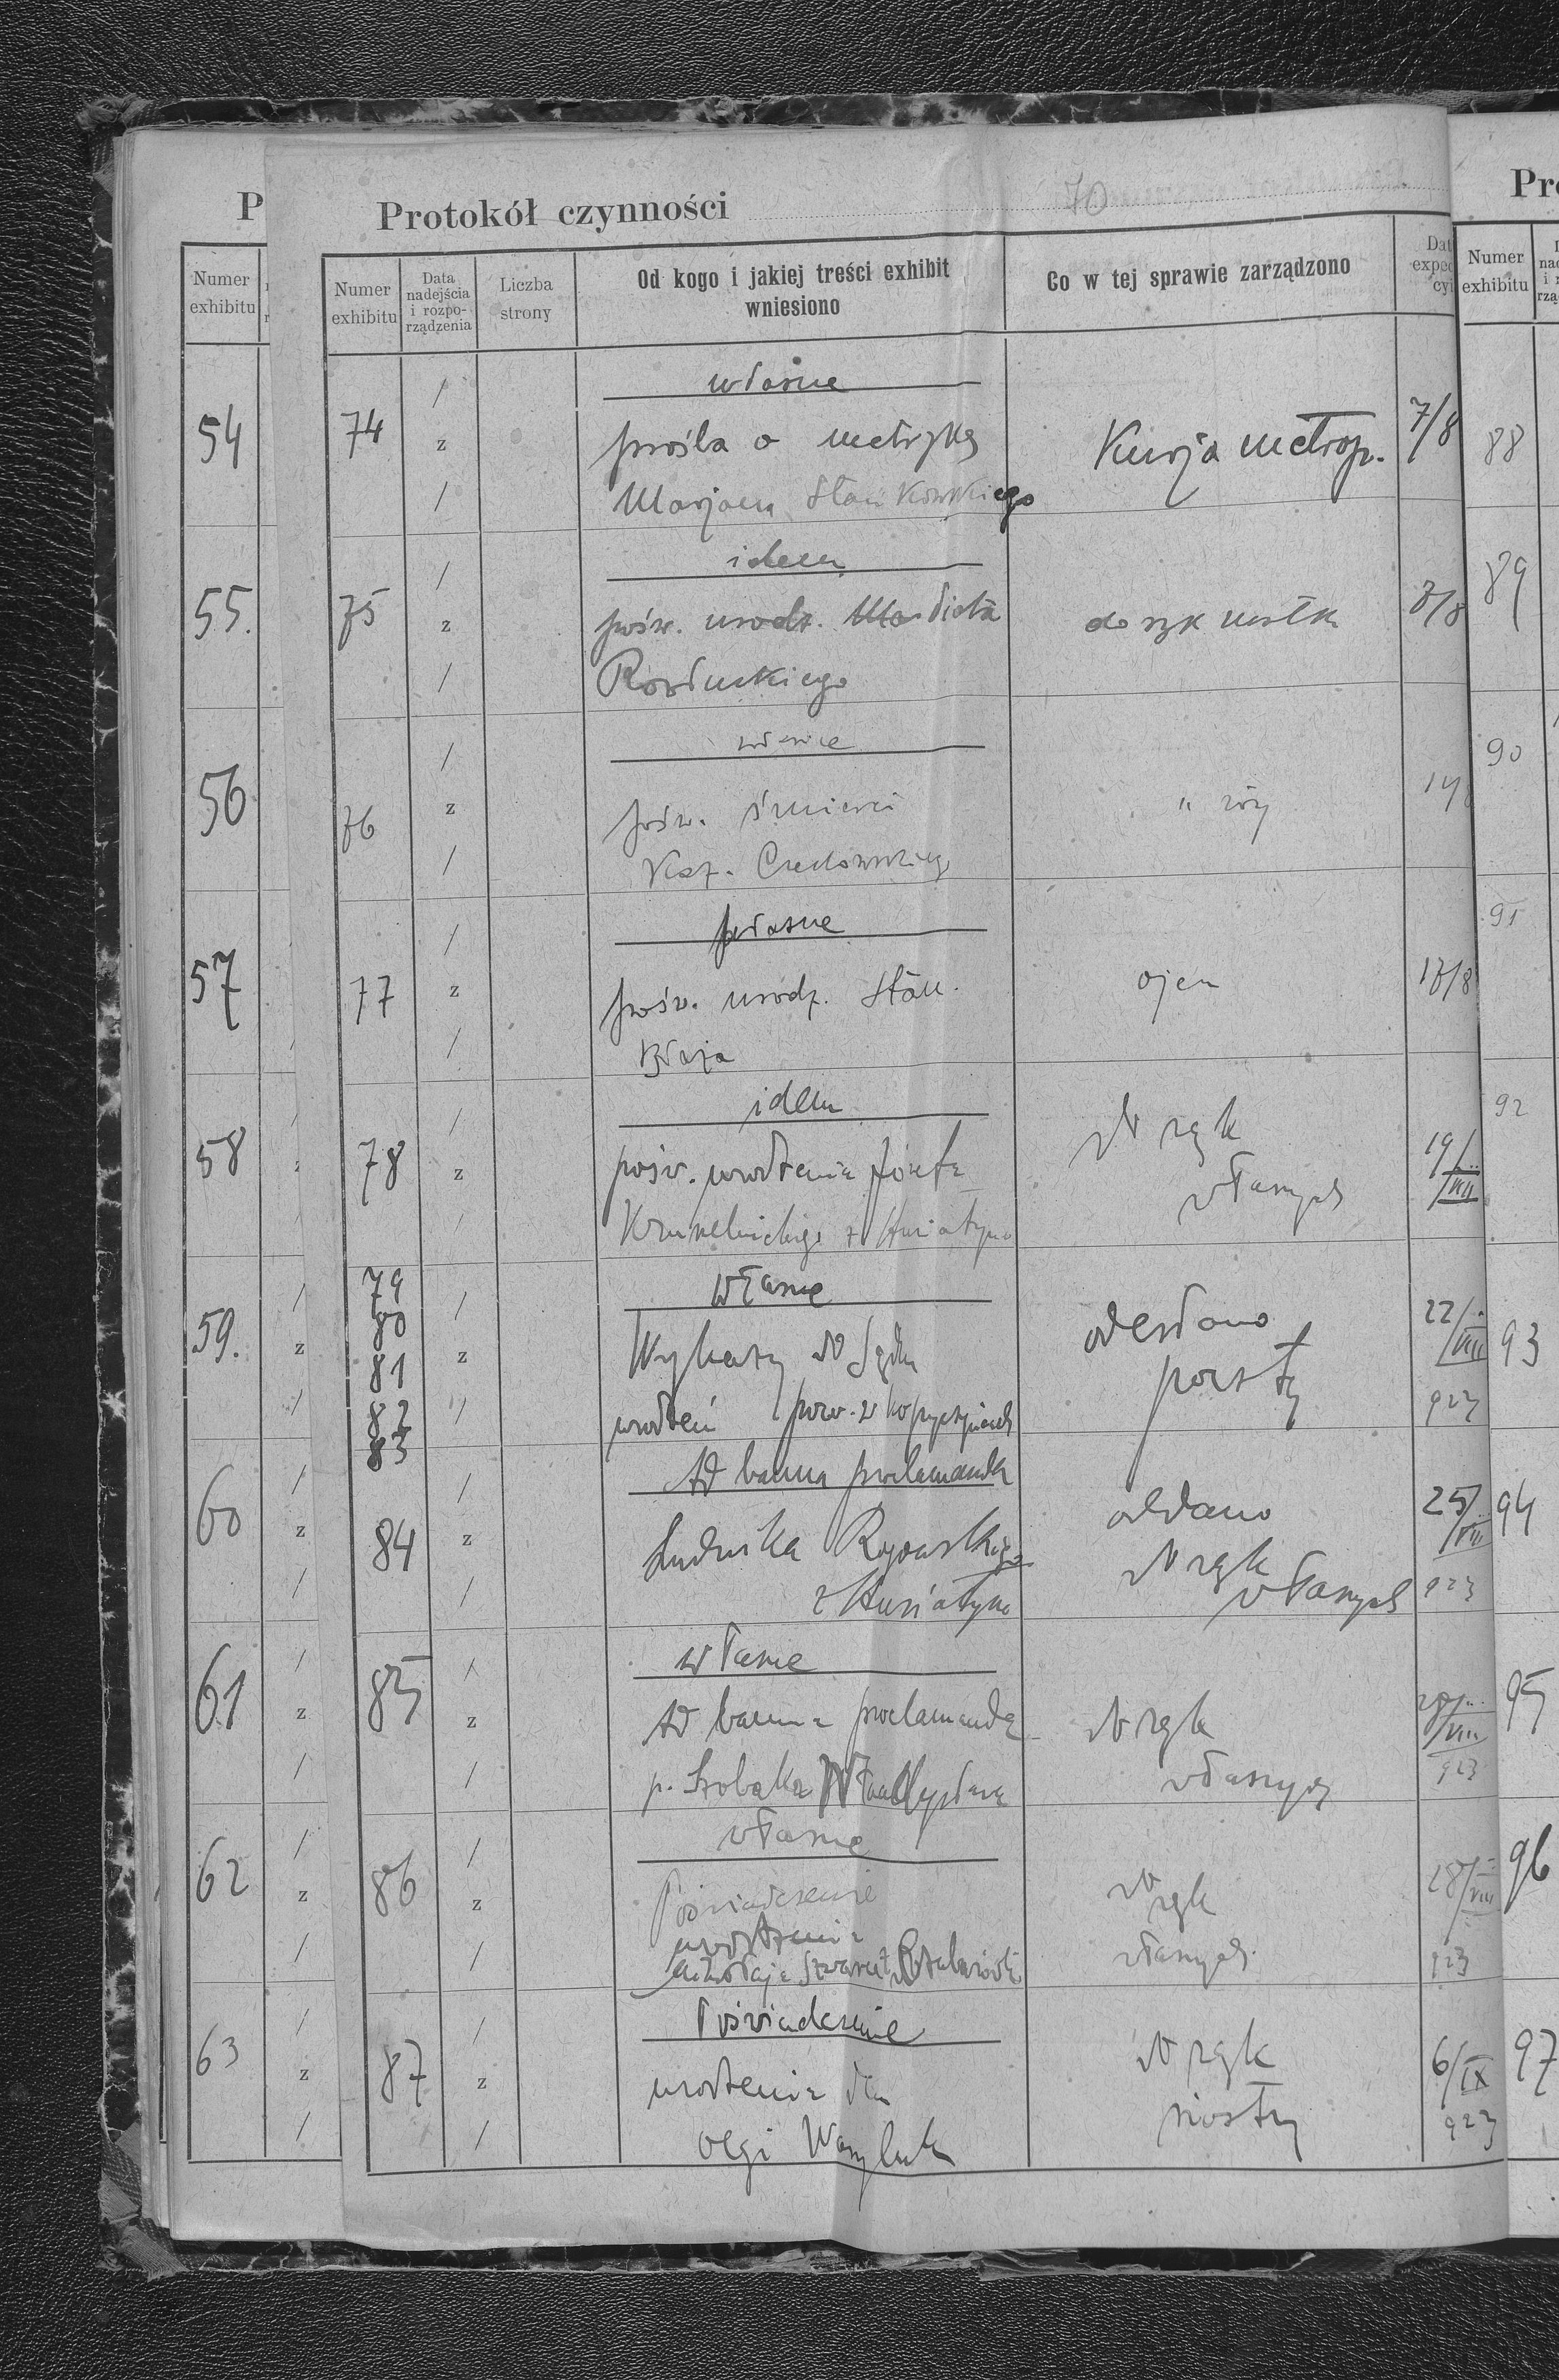 P
Numer
exhibitu
54
55.
56
57
58
59.
60
61
62
63
Protokół czynności
70
Numer
exhibitu
Data
nadejścia
i rozpo-
rządzenia
Liczba
strony
Od kogo i jakiej treści exhibit
wniesiono
Co w tej sprawie zarządzono
Dat
expe
cyi
74
z
własne
prośba o metrykę
Marjana Stankowskiego
Kurja metrop.
7/8
75
z
idem
pośw. urodz.
do rąk
8/8
76
z
własne
pośw. śmierci
Kaz.
"
14/8
77
z
własne
pośw. urodz. Stan.
Błaża
ojcu
17/8
78
z
idem
pośw. urodzenia Józefa
z Husiatyna
do rąk
własnych
19/VIII
79
80
81
82
83
z
własne
Wykazy do Sądu
urodzeń pow. w Kopyczyńcach
odesłano
pocztą
22/VIII
923
84
z
Ad banna proclamanda
Ludwika
z Husiatyna
oddano
do rąk
własnych
25/VIII
923
85
z
własne
Ad banna proclamanda
p. Władysława
do rąk
własnych
28/VIII
923
86
z
własne
Poświadczenie
urodzenia
Mikołaja
do
rąk
własnych
28/VIII
923
87
z
Poświadczenie
urodzenia dla
Olgi Wasyluk
do rąk
siostry
6/IX
923
Pro
Numer
exhibitu
88
89
90
91
92
93
94
95
96
97